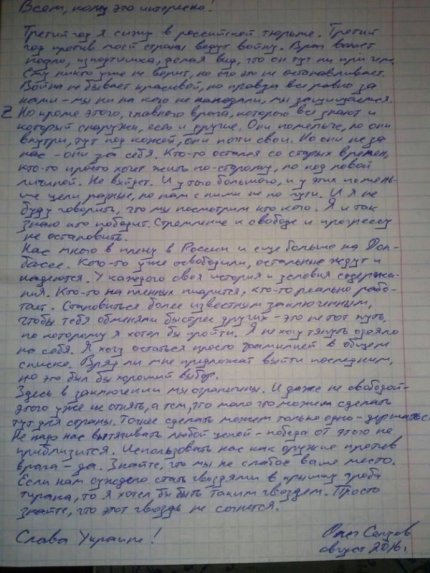 Всем, кому это интересно!
Третий год я сижу в российской тюрьме. Третий
год против моей страны ведут войну. Враг воюет
подло, исподтишка, делая вид, что он тут ни при чем.
Ему никто уже не верит, но его это не останавливает.
Война не бывает красивой, но правда все равно за
нами - мы ни на кого не нападали, мы защищаемся.
Но кроме этого, главного врага, которого все знают и
который снаружи, есть и другие. Они помельче, но они
внутри, тут под кожей, они почти свои. Но они не за
нас - они за себя. Кто-то остался со старых времен,
кто-то просто хочет жить по-старому, но под новой
личиной. Не выйдет. И у того большого, и у этих помень-
ше цели разные, но нам с ними не по пути. И я не
буду говорить, что мы посмотрим кто кого. Я и так
знаю кто победит. Стремление к свободе и прогрессу
не остановить.
Нас много в плену в России и еще больше на Дон-
бассе. Кого-то уже освободили, остальные ждут и
надеются. У каждого своя история и условия содержа-
ния. Кто-то на пленных пиарится, кто-то реально рабо-
тает. Становиться более известным заключенным,
чтобы тебя обменяли быстрее других - это не тот путь,
по которому я хотел бы пройти. Я не хочу тянуть одеяло
на себя. Я хочу остаться просто фамилией в общем
списке. Вряд ли мне предложат выйти последним,
но это был бы хороший выбор.
Здесь в заключении мы ограничены. И даже не свободой -
этого уже не отнять, а тем, что мало что можем сделать
тут для страны. Точнее сделать можем только одно - держаться.
Не надо нас вытягивать любой ценой - победа от этого не
приблизится. Использовать нас как оружие против
врага - да. Знайте, что мы не слабое ваше место.
Если нам суждено стать гвоздями в крышку гроба
тирана, то я хотел бы быть таким гвоздем. Просто
знайте, что этот гвоздь не согнется.
Слава Украине!
Олег Сенцов
август 2016г.